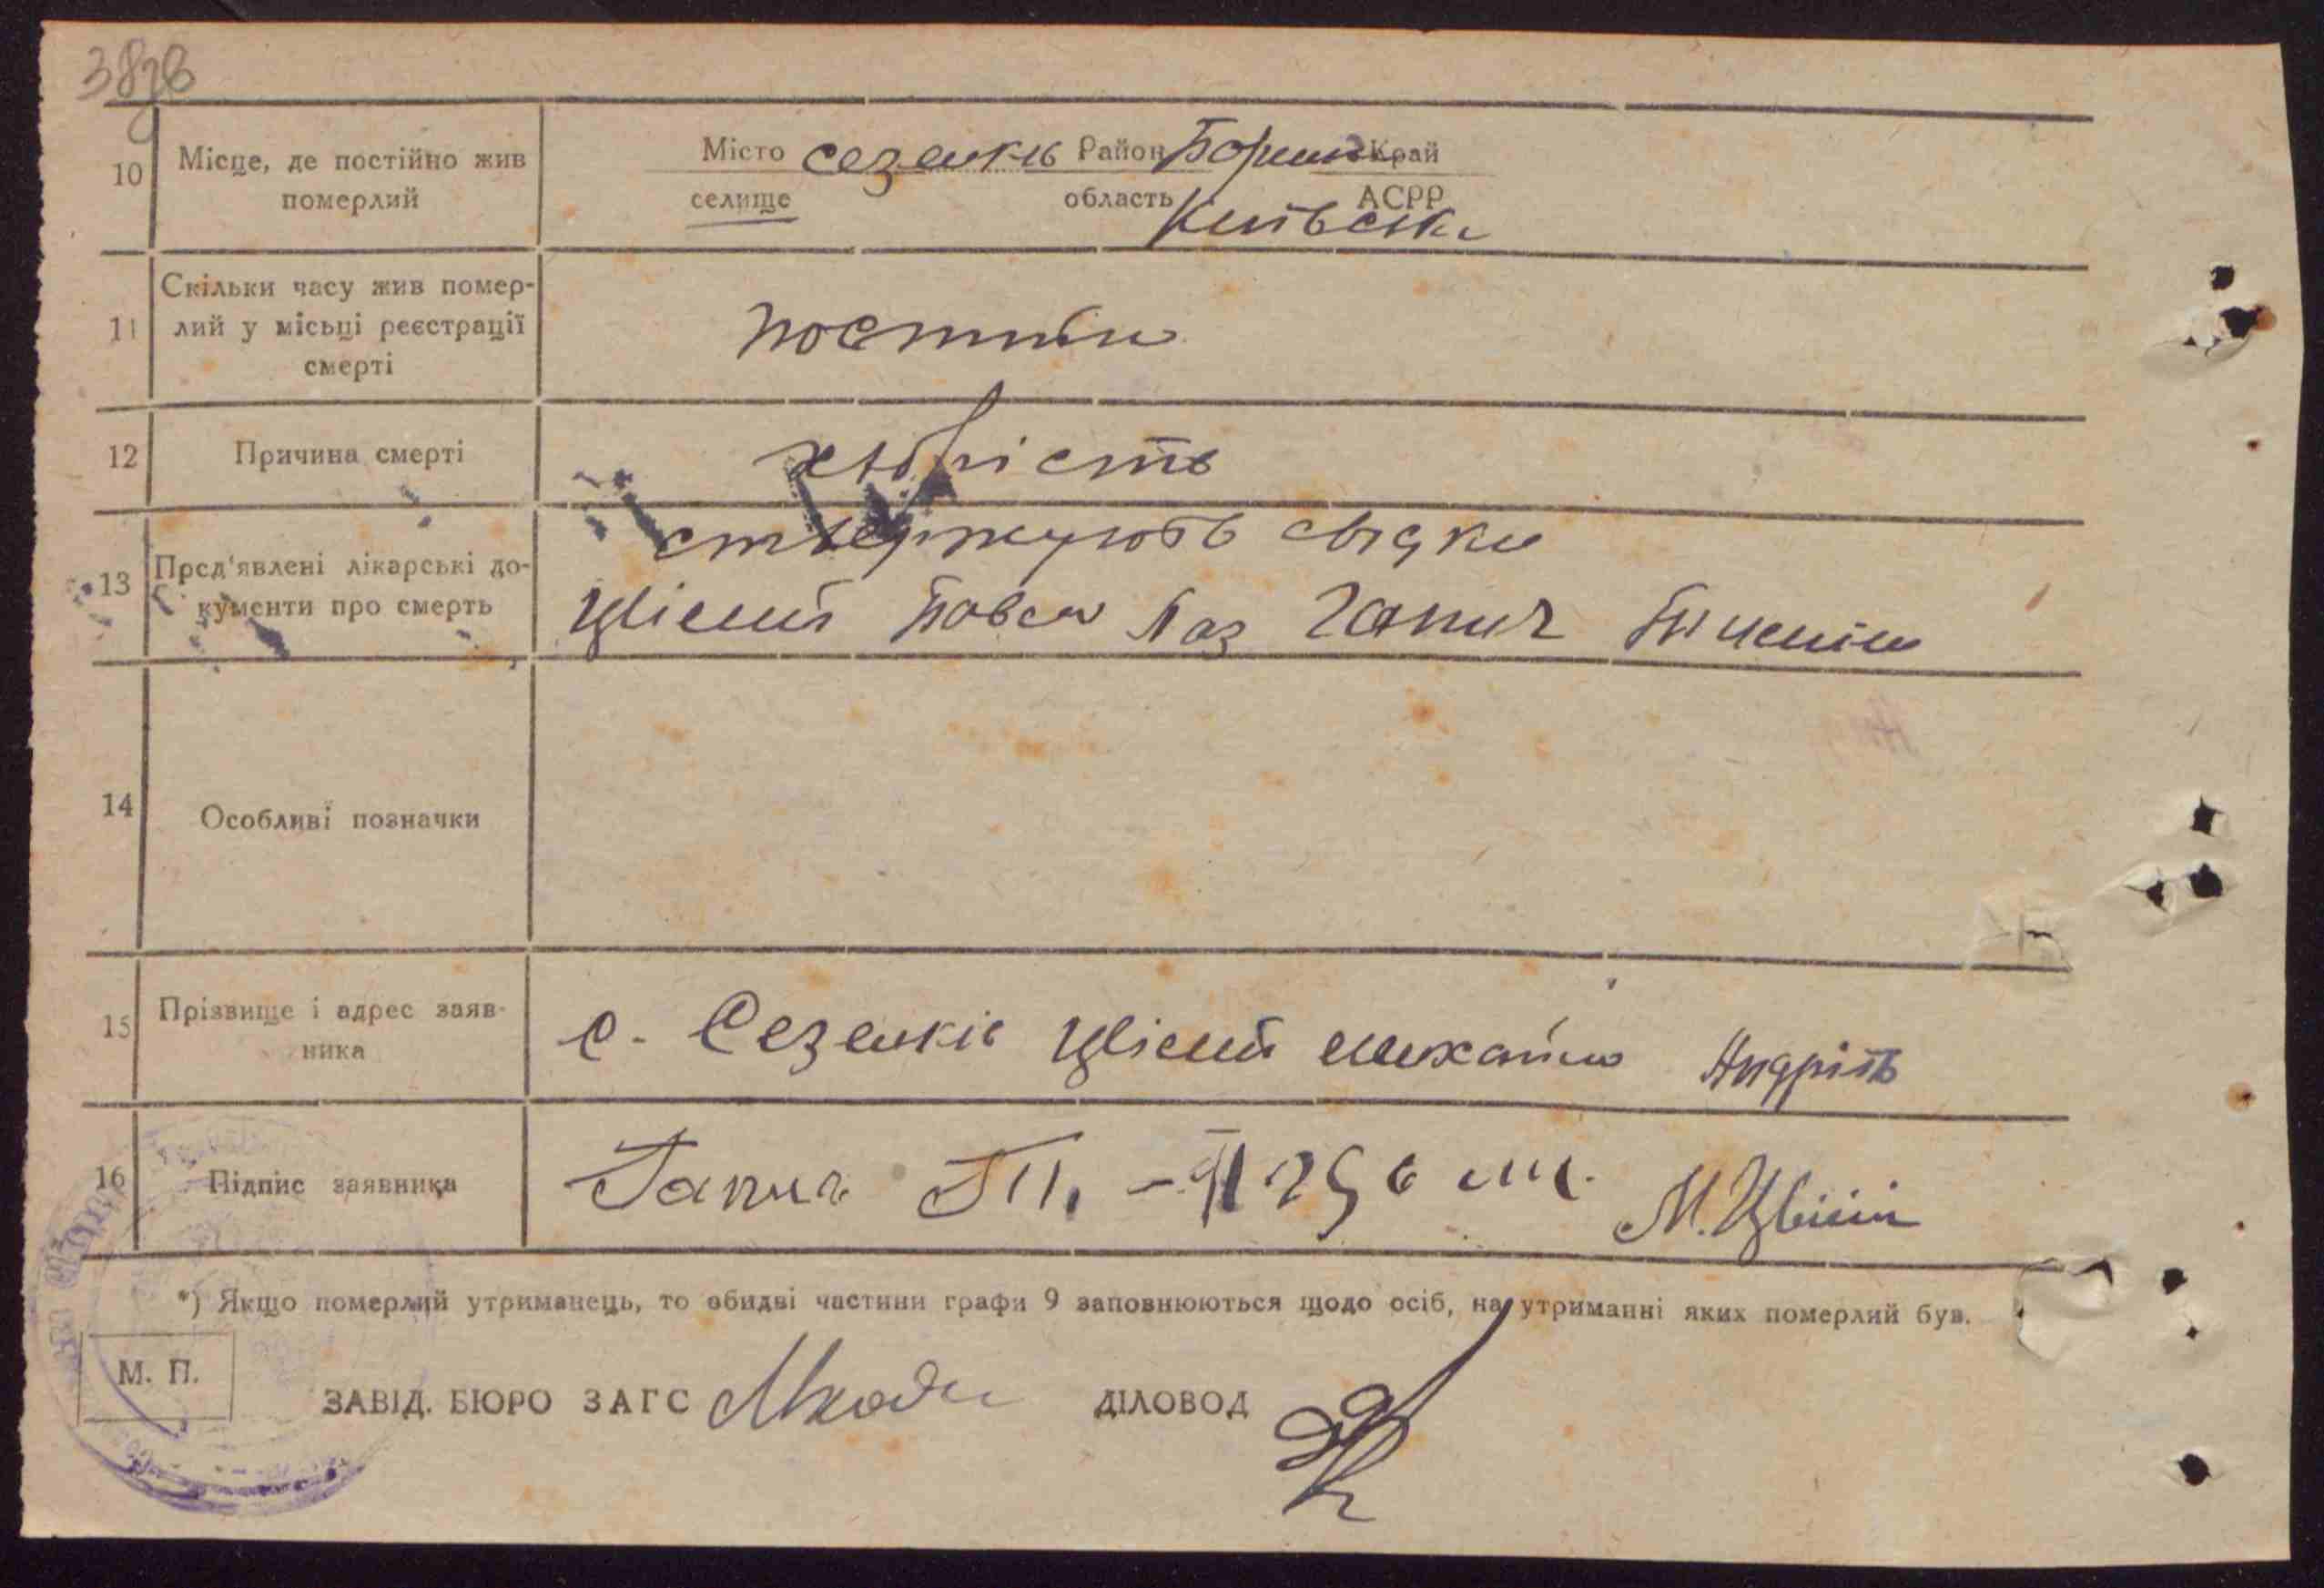 10 Місце, де постійно жив
померлий
Місто Сезенків Район Край
селище область АСРР
Київська
11 Скільки часу жив помер-
лий у місьці реєстрації
смерті
постійно
12 Причина смерті
13 Пред'явлені лікарські до-
кументи про смерть
ствержують свідки
Цвісий Павло Лаз Гапич
14 Особливі позначки
15 Прізвище і адрес заяв-
ника
с. Сезенків Цвісий Михайло Андрієв
16 Підпис заявника
Гапич М. Цвісий
*) Якщо померлий утриманець, то обидві частини графи 9 заповнюються щодо осіб, на утриманні яких померлий був.
М. П.
ЗАВІД. БЮРО ЗАГС ДІЛОВОД